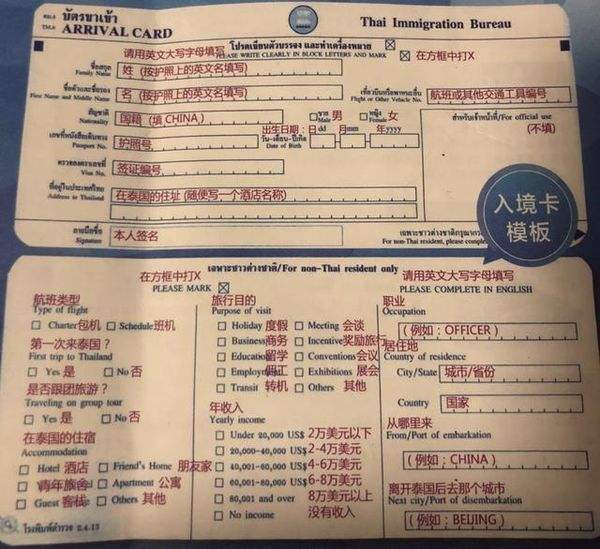 ตม.6 บัตรขาเข้า
TM.6 ARRIVAL CARD
Thai Immigration Bureau
请用英文大写字母填写
โปรดเขียนตัวบรรจง และทำเครื่องหมาย ☒
PLEASE WRITE CLEARLY IN BLOCK LETTERS AND MARK ☒ 在方框中打X
ชื่อสกุล
Family Name 姓 (按护照上的英文名填写)
ชื่อตัวและชื่อรอง
First Name and Middle Name 名 (按护照上的英文名填写)
เที่ยวบินหรือพาหนะอื่น
Flight or Other Vehicle No. 航班或其他交通工具编号
สัญชาติ
Nationality 国籍 (填 CHINA)
ชาย
Male 男
หญิง
Female 女
สำหรับเจ้าหน้าที่/For official use
(不填)
เลขที่หนังสือเดินทาง
Passport No. 护照号
出生日期:日dd 月mm 年yyyy
วัน-เดือน-ปีเกิด
Date of Birth
ตรวจลงตราเลขที่
Visa No. 签证编号
ที่อยู่ในประเทศไทย
Address in Thailand 在泰国的住址 (随便写一个酒店名称)
ลายมือชื่อ
Signature 本人签名
For non-Thai resident, please
入境卡
模板
เฉพาะชาวต่างชาติ/For non-Thai resident only
在方框中打X
PLEASE MARK ☒
请用英文大写字母填写
PLEASE COMPLETE IN ENGLISH
航班类型
Type of flight
Charter包机 Schedule班机
第一次来泰国?
First trip to Thailand
Yes 是 No 否
是否跟团旅游?
Traveling on group tour
Yes 是 No 否
在泰国的住宿
Accommodation
Hotel 酒店 Friend's Home 朋友家
青年旅舍 Apartment 公寓
Guest 客栈 Others 其他
โรงพิมพ์ตำรวจ
旅行目的
Purpose of visit
Holiday 度假 Meeting 会谈
Business商务 Incentive奖励旅行
Education留学 Conventions会议
Employment佣工 Exhibitions 展会
Transit 转机 Others 其他
年收入
Yearly income
Under 20,000 US$ 2万美元以下
20,000-40,000 US$ 2-4万美元
40,001-60,000 US$ 4-6万美元
60,001-80,000 US$ 6-8万美元
80,001 and over 8万美元以上
No income 没有收入
职业
Occupation
(例如:OFFICER)
居住地
Country of residence
City/State 城市/省份
Country 国家
从哪里来
From/Port of embarkation
(例如:CHINA)
离开泰国后去那个城市
Next city/Port of disembarkation
(例如:BEIJING)